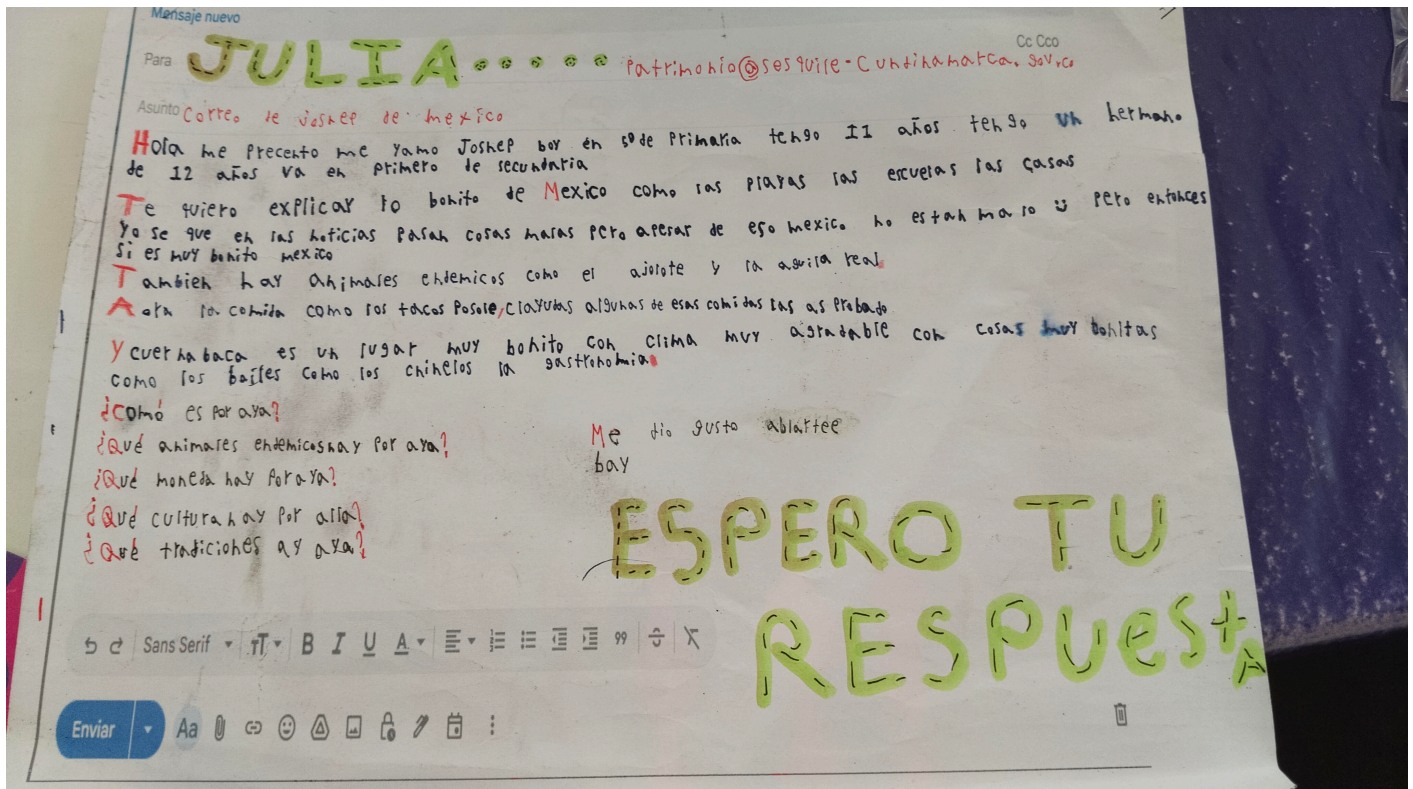 Mensaje nuevo
Cc Cco
Para JULIA..... Patrimonio@sesquile-cundinamarca.gov.co
Asunto Correo de Joshep de mexico
Hola me precento me yamo Joshep boy en 5º de Primaria tengo 11 años tengo un hermano
de 12 años va en primero de secundaria
Te quiero explicar lo bonito de Mexico como las playas las escuelas las casas
Yo se que en las noticias pasan cosas malas pero apesar de eso mexico no es tan malo Pero entonces
si es muy bonito mexico
Tambien hay animales endemicos como el ajolote y la aguila real
Aora la comida como los tacos Posole, clayudas algunas de esas comidas las as probado
Y cuernabaca es un lugar muy bonito con clima muy agradable con cosas muy bonitas
como los bailes como los chinelos la gastronomia
¿como es por aya?
¿Qué animales endemicos hay por aya?
¿Qué moneda hay por aya?
¿Qué cultura hay por alla?
¿Qué tradiciones ay aya?
Me dio gusto ablartee
bay
ESPERO TU
RESPUestA
Sans Serif
Enviar